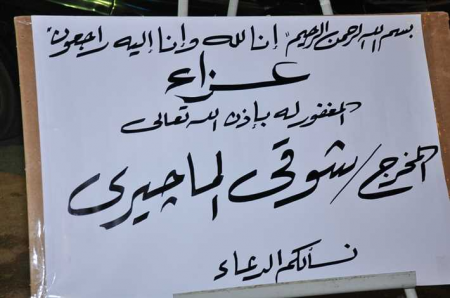 بسم الله الرحمن الرحيم "إنا لله وإنا إليه راجعون"
عزاء
المغفور له بإذن الله تعالى
المخرج / شوقى الماچيرى
نسألكم الدعاء